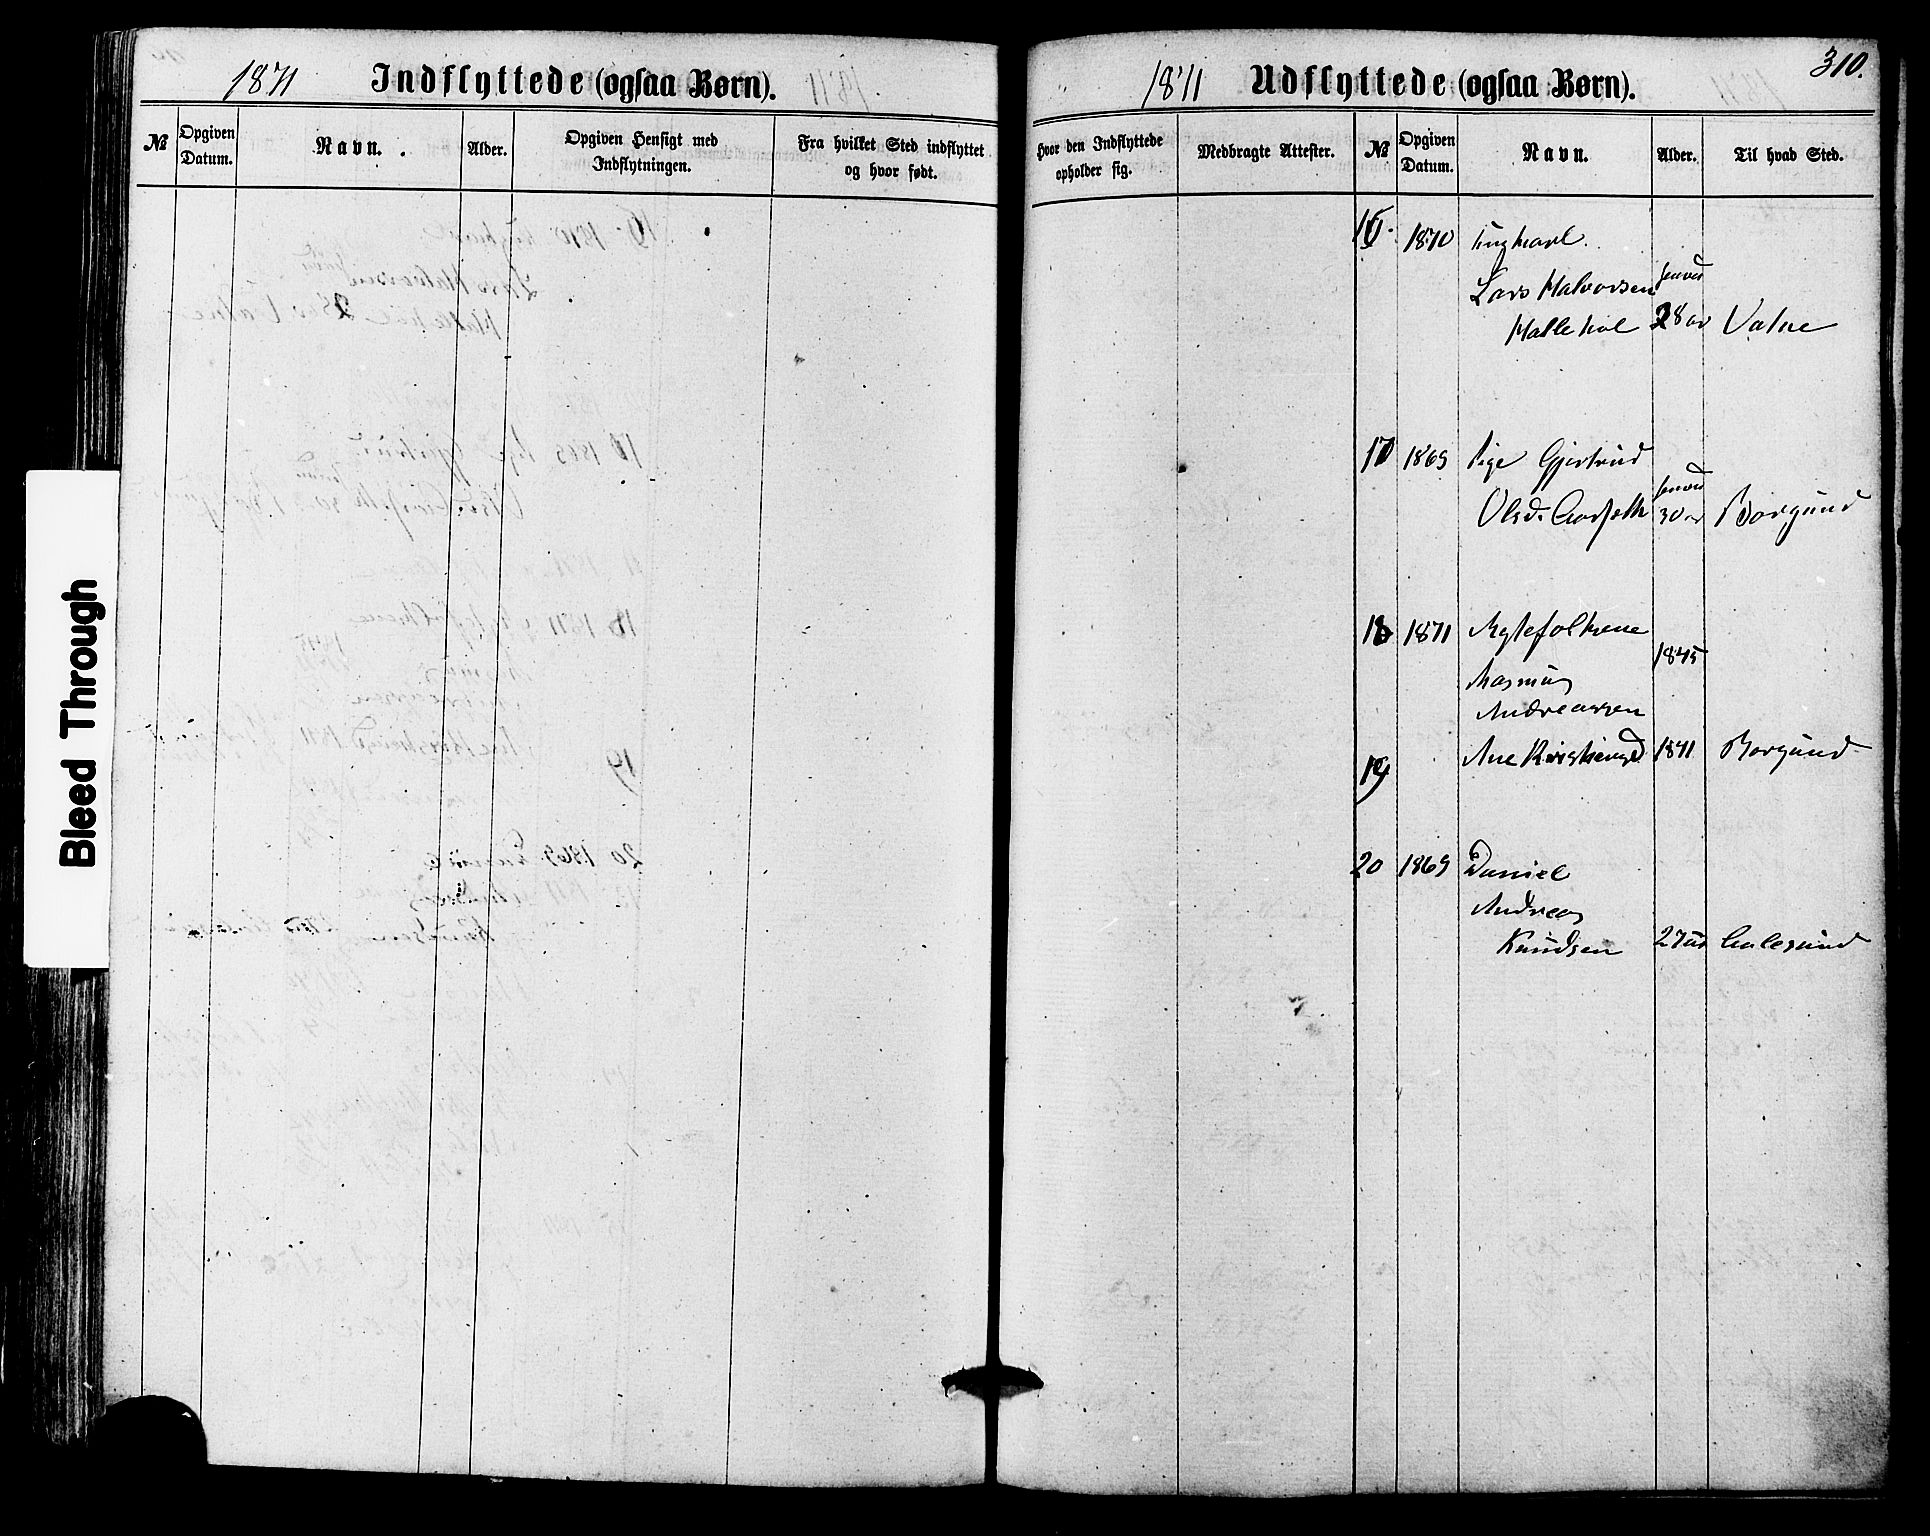 310.
1871 Indflyttede (ogsaa Børn).
№ Opgiven Datum. Navn. Alder. Opgiven Hensigt med Indflytningen. Fra hvilket Sted indflyttet og hvor født.
1871 Udflyttede (ogsaa Børn).
Hvor den Indflyttede opholder sig. Medbragte Attester. № Opgiven Datum. Navn. Alder. Til hvad Sted.
16. 1870 Ungkarl
Lars Halvorsen
28 Vatne
17 1869 Pige Gjertrud
Olsd. 30 Borgund
18 1871 Ægtefolkene
1845
Rasmus
Andreassen
19 Ane 1871 Borgund
20 1869 Daniel
Andreas
Knudsen 27 Aalesund
Bleed Through